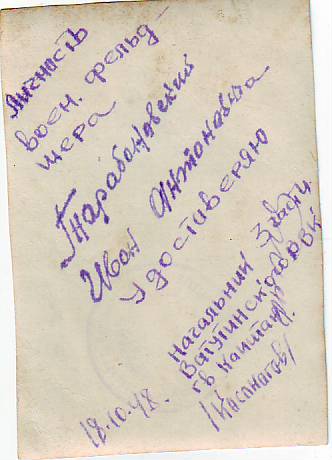 Личность
воен. фельд-
шера
Тарабановский
Иван Антонович
удостоверяю
Начальник 3 части
Ватутинского РВК
гв капитан
18.10.48.